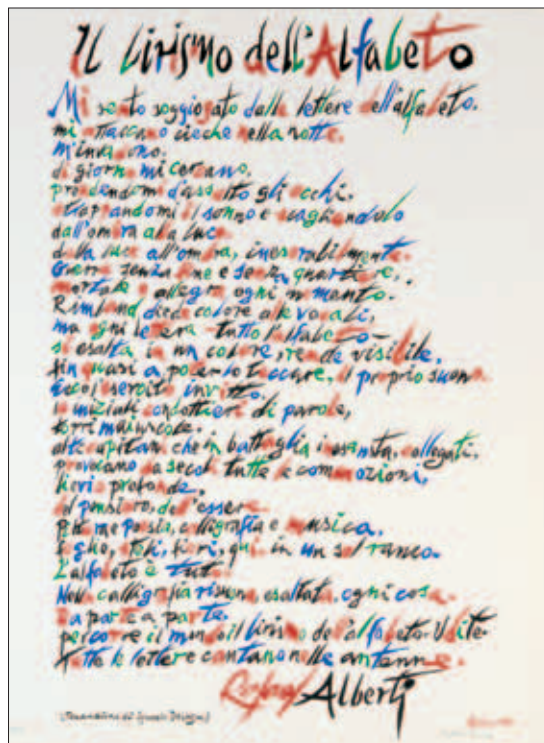 Il Lirismo dell'Alfabeto
Mi sento soggiogato dalle lettere dell'alfabeto.
mi attaccano cieche nella notte.
m'invadono.
di giorno mi cercano.
prendendomi d'assalto gli occhi.
strappandomi il sonno e scagliandolo
dall'ombra alla luce
dalla luce all'ombra, inesorabilmente.
Guerra senza fine e senza quartiere,
mortale e allegra ogni momento.
Rimbaud diede colore alle vocali,
ma ogni lettera - tutto l'alfabeto -
si esalta in un colore, rende visibile,
fin quasi a poterlo toccare, il proprio suono.
Ecco l'esercito invitto.
condottieri di parole,
torri maiuscole.
che in battaglia collegati,
provocano da secoli tutte le commozioni,
lievi e profonde,
del pensiero, dell'essere.
Per me poesia, calligrafia e musica.
foglie, steli, fiori, qui in un sol ramo.
L'alfabeto è tutto.
Nella calligrafia risuona esaltata, ogni cosa.
Da parte a parte.
percorre il mondo il lirismo dell'alfabeto. Udite.
Tutte le lettere cantano nelle antenne.
Rafael Alberti